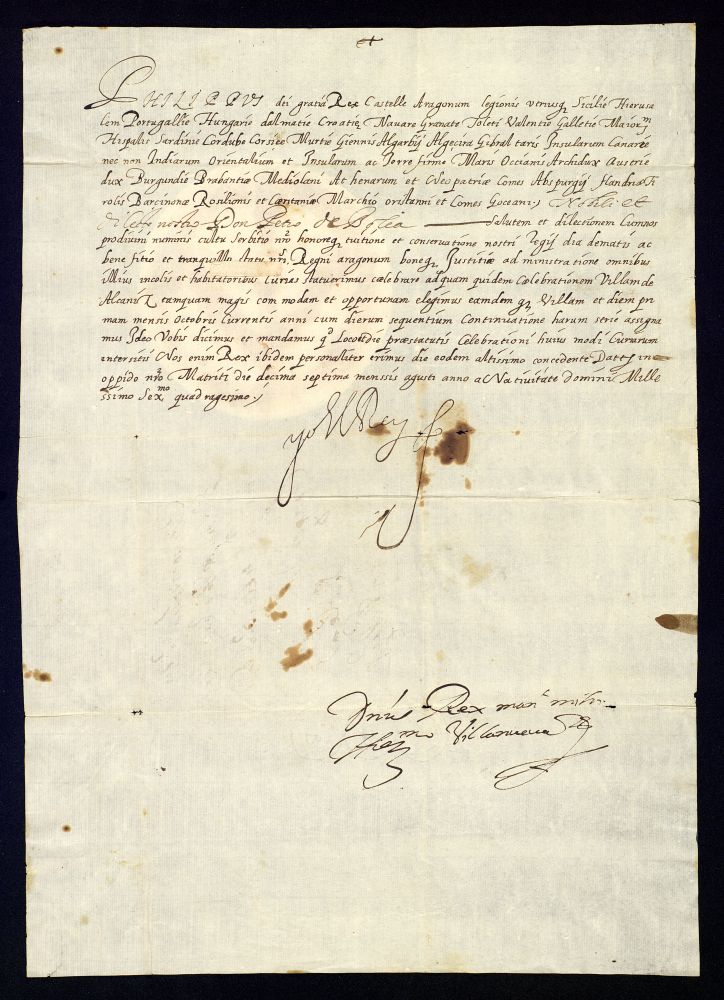 PHILIPPVS dei gratia Rex Castelle Aragonum legionis vtriusq Sicilie Hierusa
lem Portugallie Hungarie dalmatie Croatie Navare Granate Toleti Valentie Galletie Maior
Hispalis Sardinie Cordube Corsice Murtie Giennis Algarbij Algecira Gibral taris Insularum Canarie
nec non Indiarum Orientalium et Insularum ac Terre firme Maris Occianis Archidux Austrie
dux Burgundie Brabantiæ Mediolani At henarum et Neo patriæ Comes Abspurgij Flandriæ Ti
rolis Barcinonæ Rosilionis et Cæritaniæ Marchio oristanni et Comes Goceani, Nobili et
dilecto nostro Don Petro de salutem et dilectionem Cumnos
prodiuini numinis cultu Serbitio nrõ honoreq tuitione et conservatione nostri Regij dia dematis ac
bene fitio et tranquillo statu nri, Regni aragonum boneq Justitiæ ad ministratione omnibus
illius incolis et habitatoribus Curias statuerimus cælebrare ad quam quidem Cælebrationem Villam de
Alcaniz tamquam magis com modam et opportunam elegimus eamdem q Villam et diem pri
mam mensis Octobris Currentis anni cum dierum sequentium Continuatione harum serie assigna
mus Ideo Vobis dicimus et mandamus q Loco et die præstatutis Celebrationi huius modi Curiarum
intersitis Nos enim Rex ibidem personaliter erimus die eodem altissimo concedente Dat in
oppido nrõ Matriti die decima septima menssis agusti anno a Na tiuitate Domini Mille
ssimo Sex.mo quadragesimo,
yo el Rey
Dnūs Rex man.t mihi
Villanueua